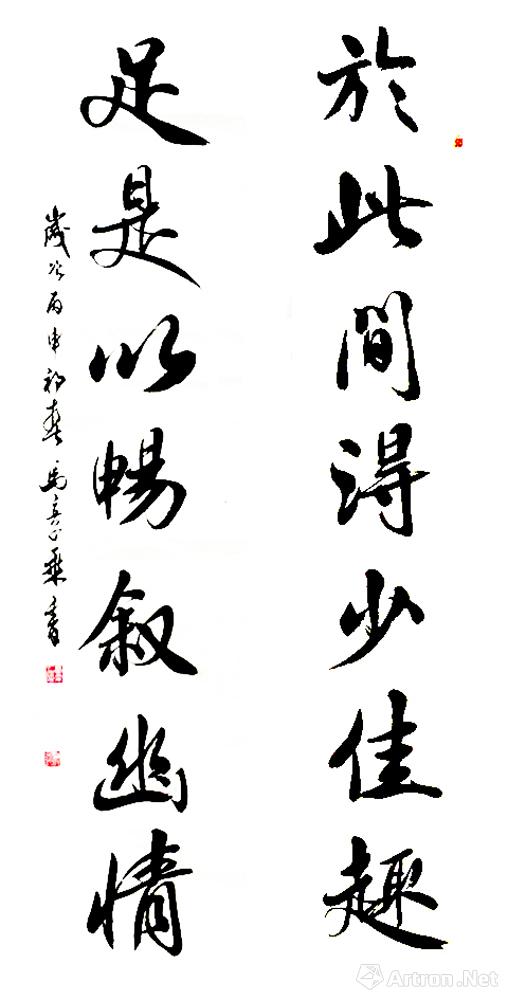 於此間得少佳趣
足是以暢叙幽情
歲次丙申初春
Artron.Net